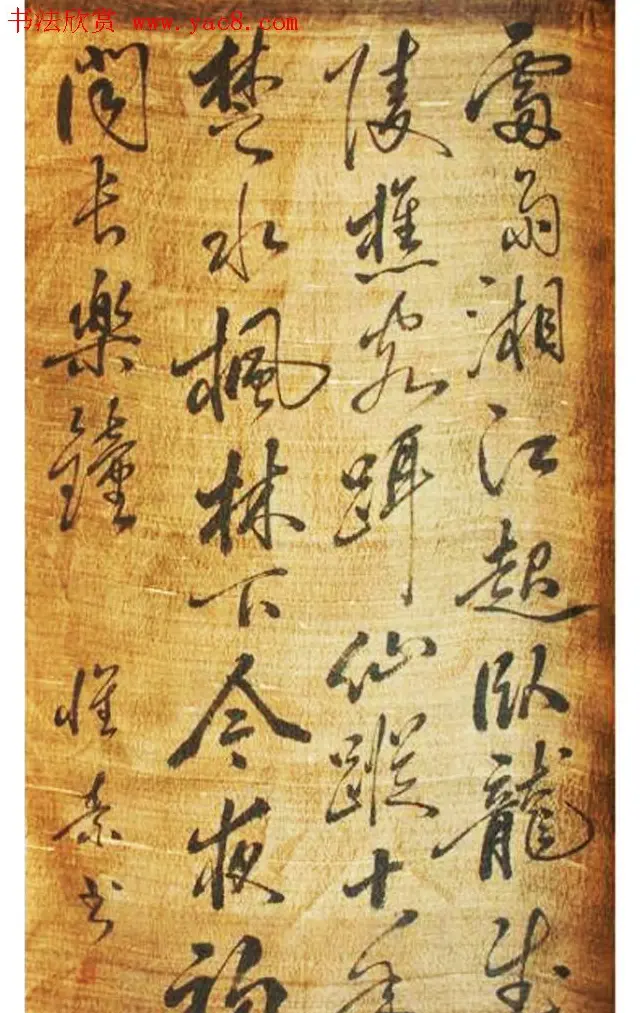 书法欣赏 www.yac8.com
雷雨湘江起臥龍武
陵樵客躡仙蹤十年
楚水楓林下今夜初
聞长樂鐘
懷素书